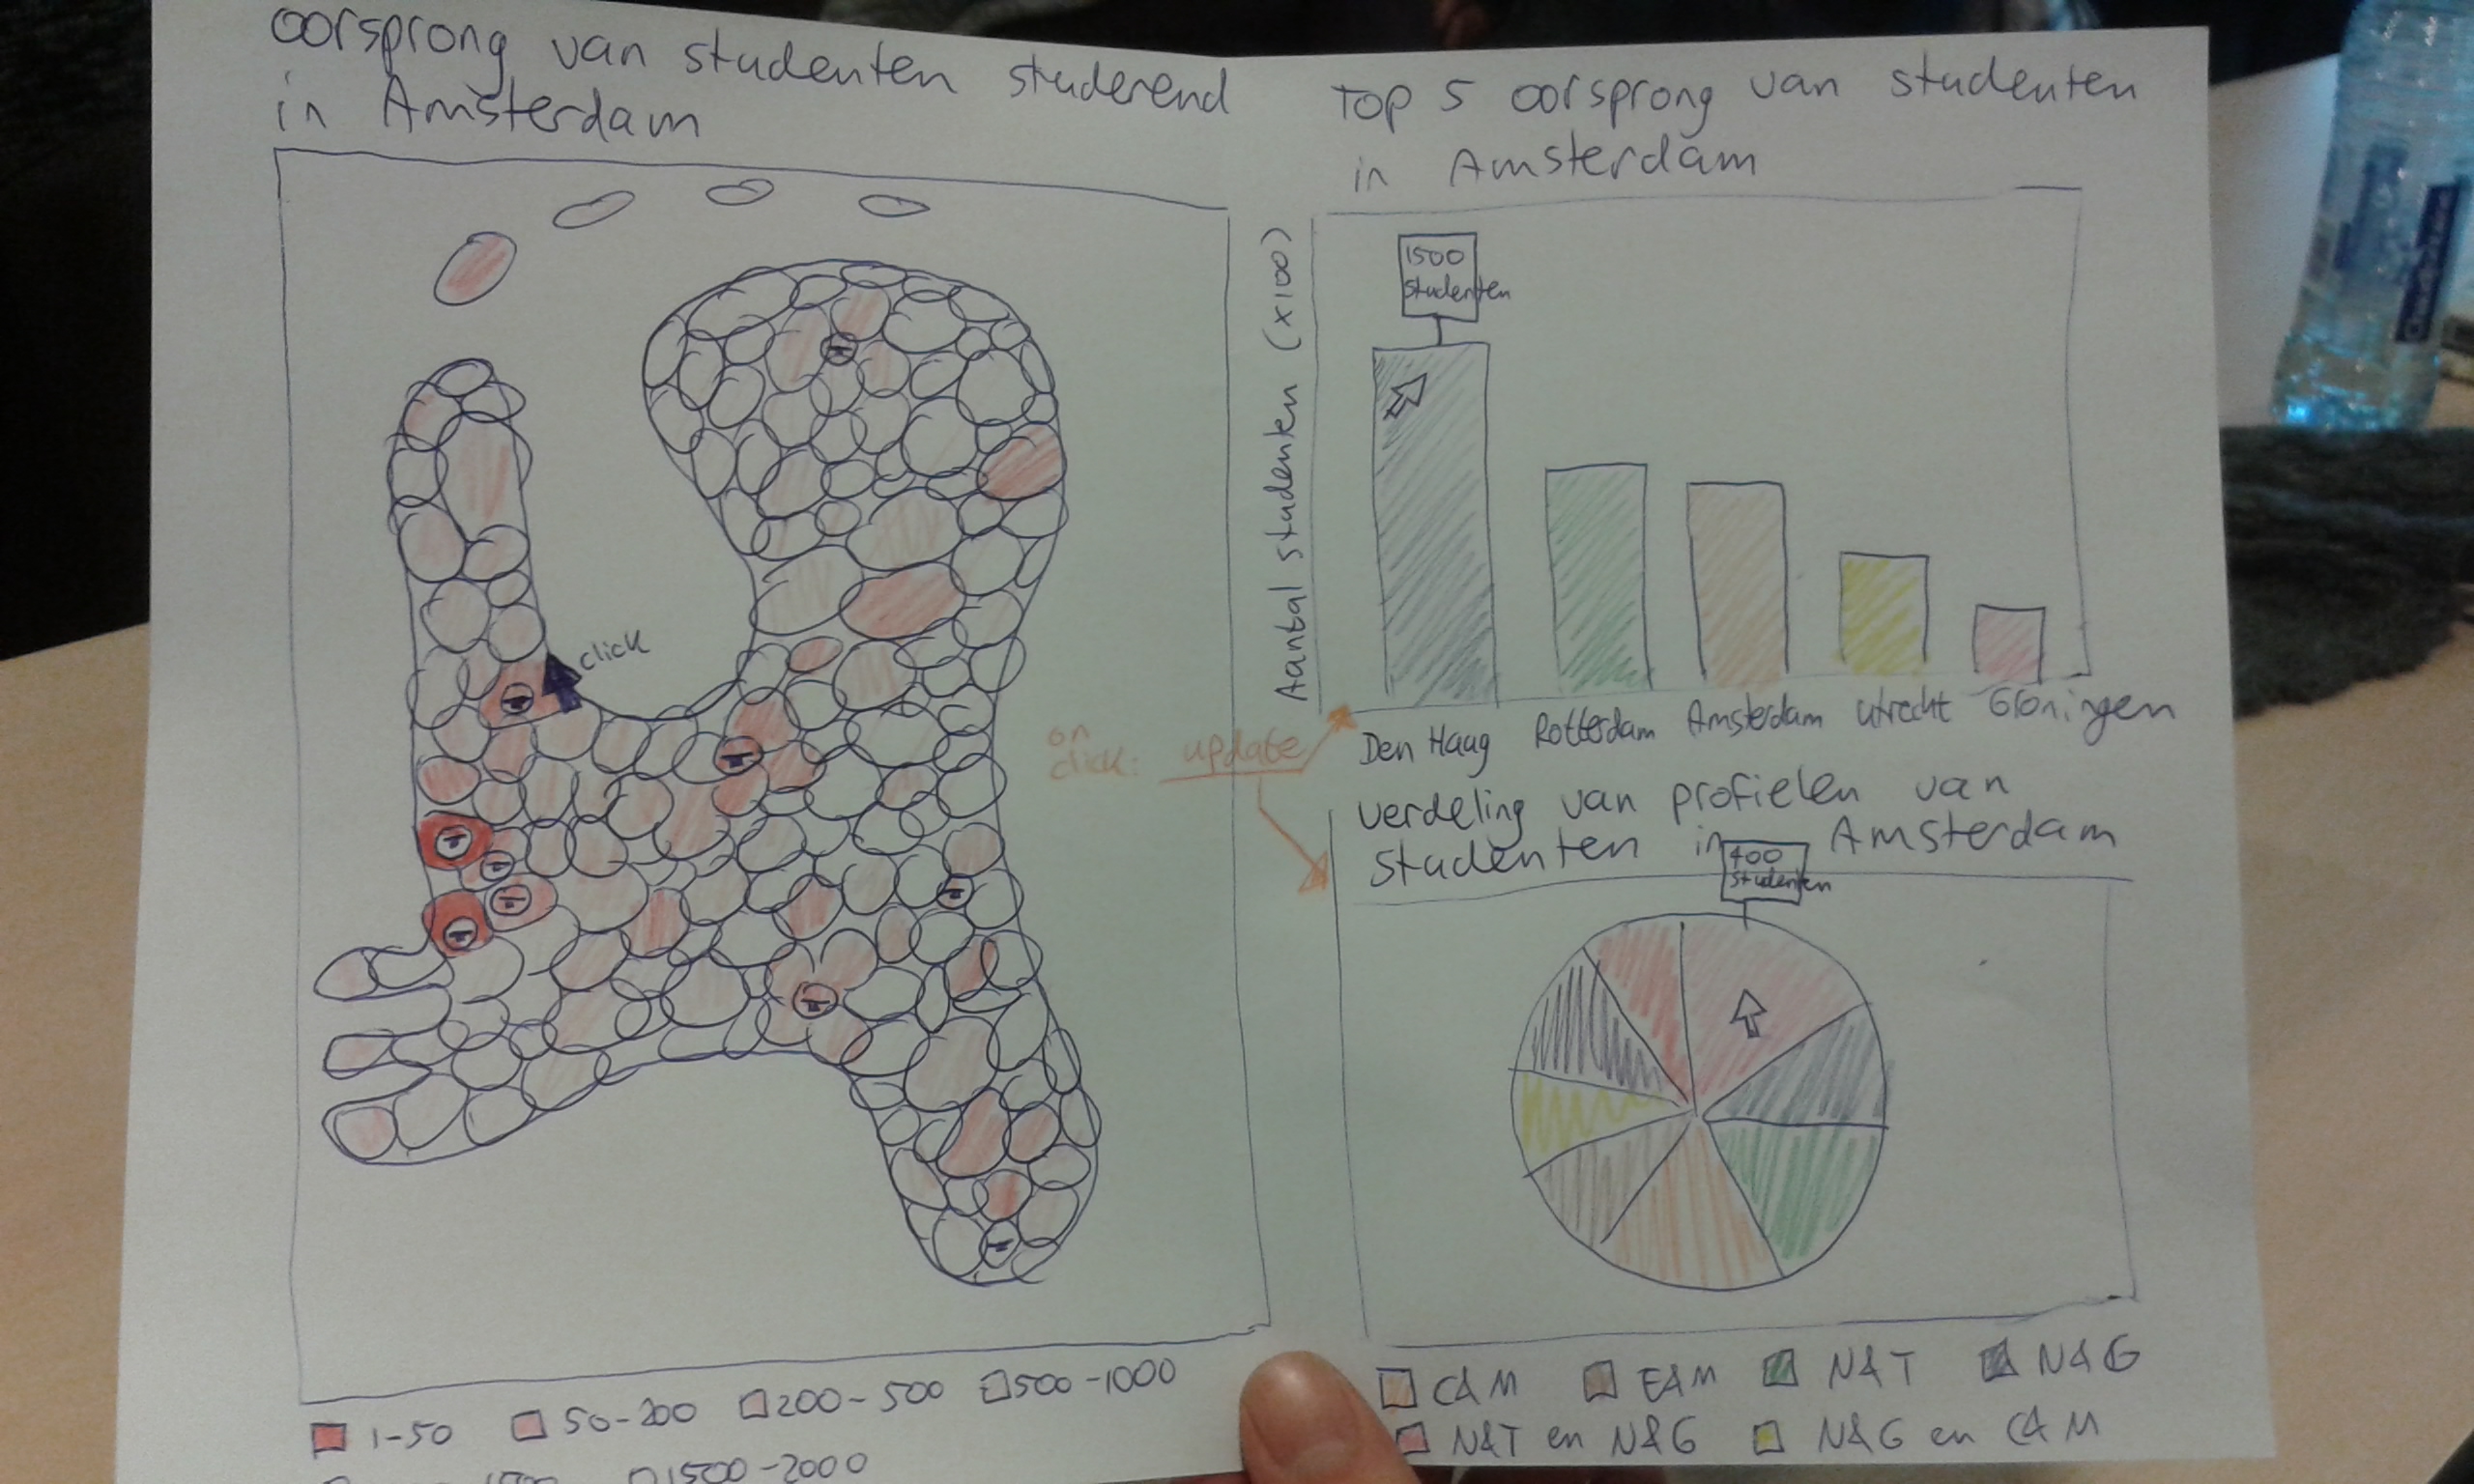 oorsprong van studenten studerend
in Amsterdam
click
1-50
50-200
200-500
500-1000
1500-2000
Top 5 oorsprong van studenten
in Amsterdam
Aantal studenten (x100)
1500
studenten
Den Haag
Rotterdam
Amsterdam
Utrecht
Groningen
on
click: update
verdeling van profielen van
studenten in Amsterdam
400
studenten
C&M
E&M
N&T
N&G
N&T en N&G
N&G en C&M